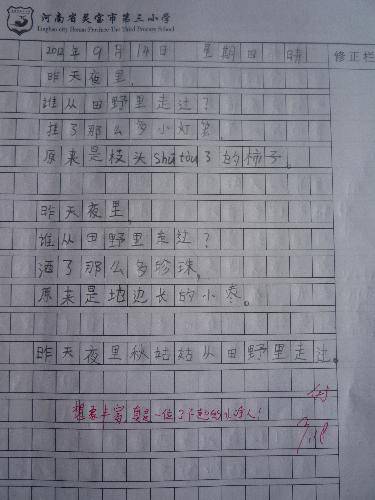 河南省灵宝市第三小学
Lingbao city Henan Province The Third Primary School
修正栏
2012年9月14日 星期日 晴
昨天夜里,
谁从田野里走过?
挂了那么多小灯笼,
原来是枝头shú tòu了的柿子。
昨天夜里,
谁从田野里走过?
洒了那么多珍珠,
原来是地边长的小枣。
昨天夜里秋姑姑从田野里走过。
想象丰富,真是一位了不起的小诗人!